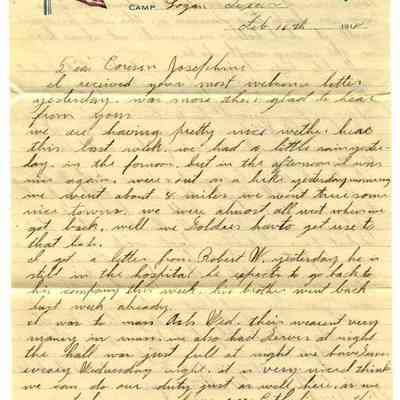 CAMP Logan Texas
Feb 16th 1918
Dear Cousin Josephine
I received your most welcome letter
yesterday. was more then glad to hear
from you.
we are having pretty nice wether here
this last week. we had a little rain yester-
day. in the fornoon. but in the afternoon it was
nice again. were out on a hike yesterday morning
we went about 8 miles we went true some
nice towns. we were almost all wet when we
got back. well we Soldies havto get use to
that
I got a letter from Robert W. yesterday he is
still in the hospital he expects to go back to
his company this week. his brother went back
last week already.
I was to mass Ash Wed. their wearent very
maney in mass. we also had Serves at night
the hall was just full at night we have
evrey Wednesday night. it is very nice I think
we can do our duty just as well here. as we